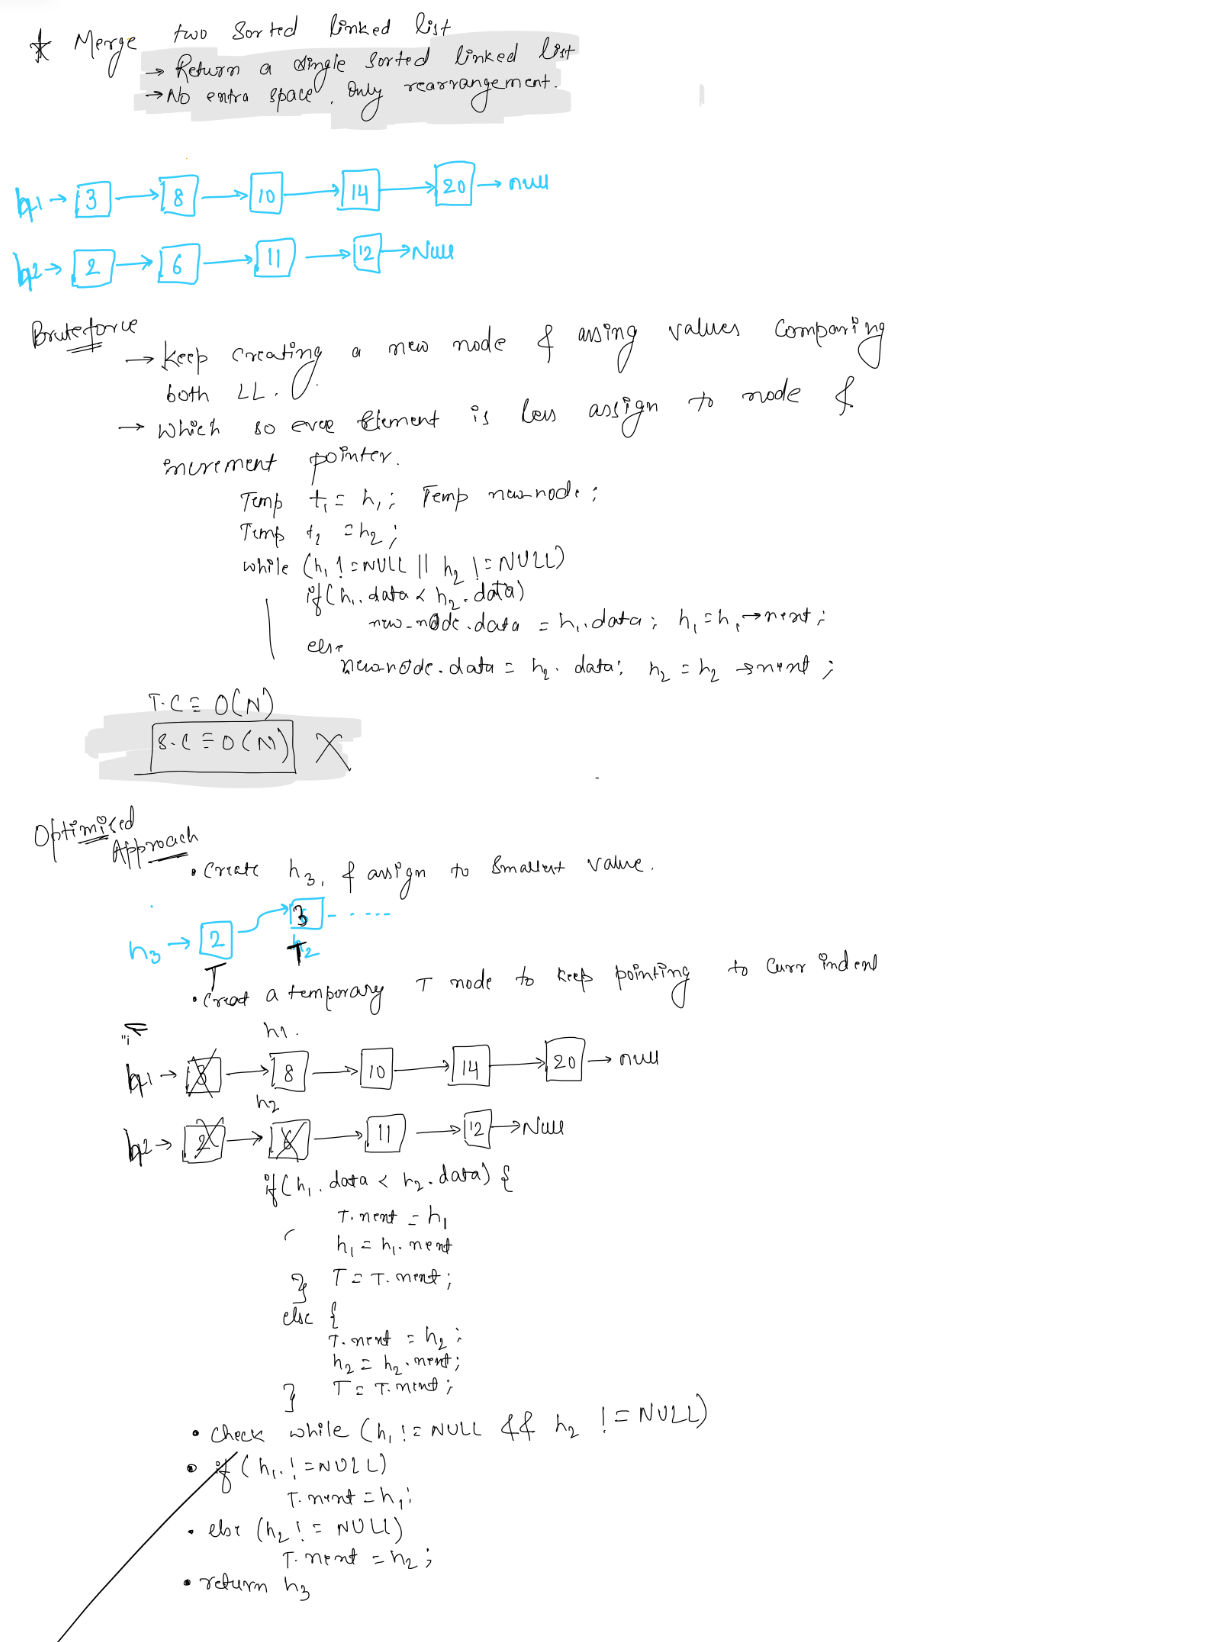 * Merge two Sorted linked list
→ Return a single sorted linked list
→ No extra space. Only rearrangement.
h1 → 3 → 8 → 10 → 14 → 20 → null
h2 → 2 → 6 → 11 → 12 → Null
Bruteforce
→ Keep creating a new node & assing values comparing
both LL.
→ Which so ever Element is less assign to node &
increment pointer.
Temp t1 = h1; Temp new-node;
Temp t2 = h2;
while (h1 != NULL || h2 != NULL)
if(h1.data < h2.data)
new-node.data = h1.data; h1 = h1→next;
else
new-node.data = h2.data; h2 = h2→next;
T.C ≡ O(N)
S.C ≡ O(N) X
Optimized
Approach
• Create h3, & assign to Smallest value.
h3 → 2 → 3 - ....
T T h2
• Creat a temporary T node to keep pointing to curr index
h1.
h1 → 3 → 8 → 10 → 14 → 20 → null
h2
h2 → 2 → 6 → 11 → 12 → Null
if(h1.data < h2.data) {
T.next = h1
h1 = h1.next
} T = T.next;
else {
T.next = h2;
h2 = h2.next;
} T = T.next;
• Check while (h1 != NULL && h2 != NULL)
• if (h1.!=NULL)
T.next = h1;
• else (h2 != NULL)
T.next = h2;
• return h3